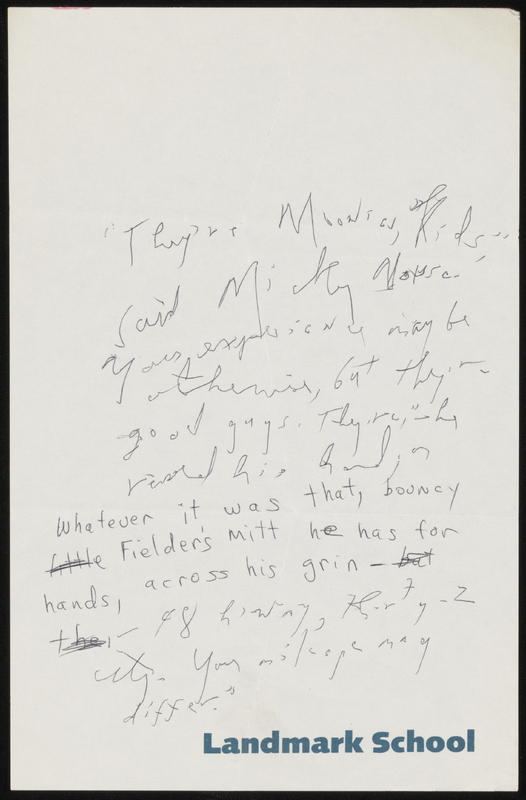 "They're Moonies, Kids,"
said Micky Mouse.
Your experience may be
otherwise, but they're
good guys. They're," he
his hand, or
Whatever it was that, bouncy
little Fielder's mitt he has for
hands, across his grin — but
the, — 48
Your mileage may
differ."
Landmark School